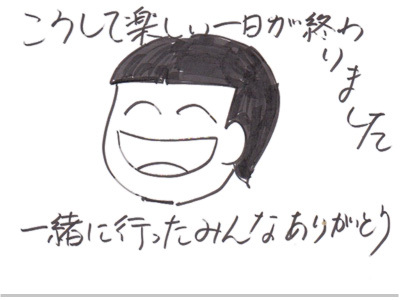 こうして楽しい一日が終わりました
一緒に行ったみんなありがとう